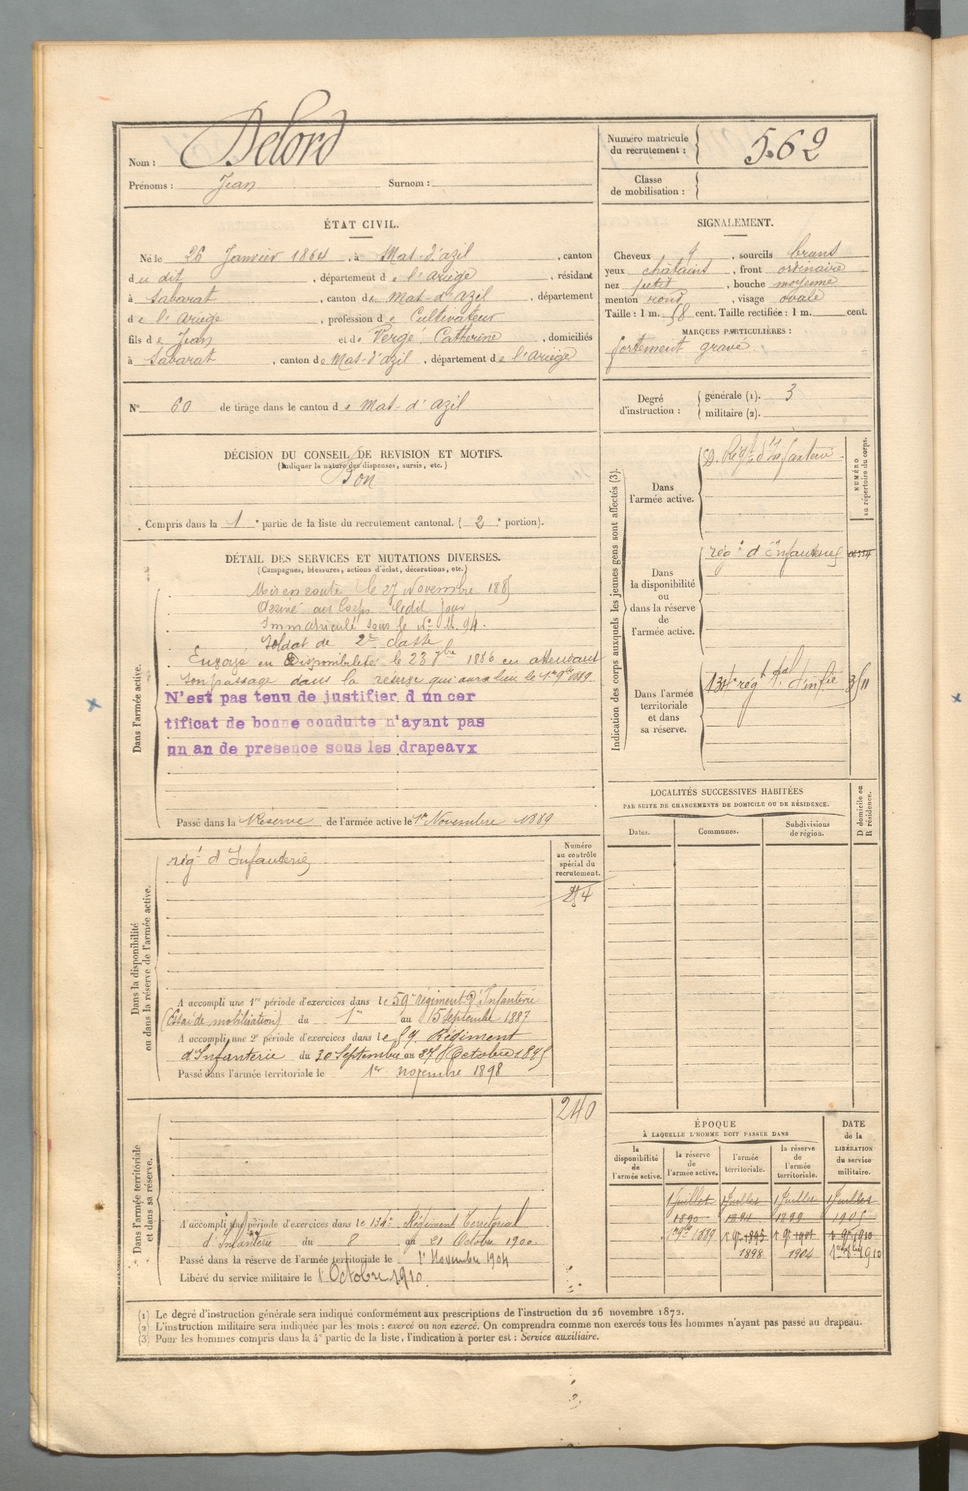 Nom : Delord
Prénoms : Jean Surnom :
Numéro matricule du recrutement : 562
Classe de mobilisation :
ÉTAT CIVIL.
Né le 26 Janvier 1864, à Mas-d'azil, canton
du dit, département de l'ariège, résidant
à Sabarat, canton de Mas-d'azil, département
de l'ariège, profession de Cultivateur
fils de Jean et de Vergé Catherine, domiciliés
à Sabarat, canton de Mas-d'azil, département de l'ariège
N° 60 de tirage dans le canton de Mas-d'azil
SIGNALEMENT.
Cheveux, sourcils bruns
yeux chatains, front ordinaire
nez petit, bouche moyenne
menton rond, visage ovale
Taille : 1 m. 58 cent. Taille rectifiée : 1 m. cent.
MARQUES PARTICULIÈRES :
fortement gravé
Degré d'instruction : générale (1). 3
militaire (2).
DÉCISION DU CONSEIL DE REVISION ET MOTIFS.
(Indiquer la nature des dispenses, sursis, etc.)
Bon
Compris dans la 1e partie de la liste du recrutement cantonal. (2e portion).
DÉTAIL DES SERVICES ET MUTATIONS DIVERSES.
(Campagnes, blessures, actions d'éclat, décorations, etc.)
Dans l'armée active.
Mis en route le 27 Novembre 1885
Arrivé au Corps ledit jour
Immatriculé sous le n°
Soldat de 2e classe
Envoyé en Disponibilité le 23 7bre 1886 en attendant
son passage dans la réserve qui aura lieu le 1er 9bre 1889.
N'est pas tenu de justifier d un cer
tificat de bonne conduite n'ayant pas
un an de presence sous les drapeavx
Passé dans la Réserve de l'armée active le 1er Novembre 1889
Dans la disponibilité ou dans la réserve de l'armée active.
Numéro au contrôle spécial du recrutement.
rég't d'Infanterie
A accompli une 1re période d'exercices dans le 59e régiment d'Infanterie
(Essai de mobilisation) du 1er au 15 Septembre 1887
A accompli une 2e période d'exercices dans le 59 Régiment
d'Infanterie du 30 Septembre au 27 Octobre 1895
Passé dans l'armée territoriale le 1er novembre 1898
Dans l'armée territoriale et dans sa réserve.
240
A accompli une période d'exercices dans le 134e Régiment Territorial
d'Infanterie du 8 au 21 Octobre 1900
Passé dans la réserve de l'armée territoriale le 1er Novembre 1904
Libéré du service militaire le 1 Octobre 1910.
Indication des corps auxquels les jeunes gens sont affectés (3).
NUMÉRO au répertoire du corps.
Dans l'armée active.
59. Rég't d'Infanterie
Dans la disponibilité ou dans la réserve de l'armée active.
rég't d'Infanterie
Dans l'armée territoriale et dans sa réserve.
134e rég't d'Infie
LOCALITÉS SUCCESSIVES HABITÉES
PAR SUITE DE CHANGEMENTS DE DOMICILE OU DE RÉSIDENCE.
Dates. Communes. Subdivisions de région. D domicile ou R résidence.
ÉPOQUE
À LAQUELLE L'HOMME DOIT PASSER DANS
DATE de la LIBÉRATION du service militaire.
la disponibilité de l'armée active. la réserve de l'armée active. l'armée territoriale. la réserve de l'armée territoriale.
1 Juillet 1 Juillet 1 Juillet 1 Juillet
1890 1899 1905
1er 9bre 1889
1898 1904
(1) Le degré d'instruction générale sera indiqué conformément aux prescriptions de l'instruction du 26 novembre 1872.
(2) L'instruction militaire sera indiquée par les mots : exercé ou non exercé. On comprendra comme non exercés tous les hommes n'ayant pas passé au drapeau.
(3) Pour les hommes compris dans la 4e partie de la liste, l'indication à porter est : Service auxiliaire.